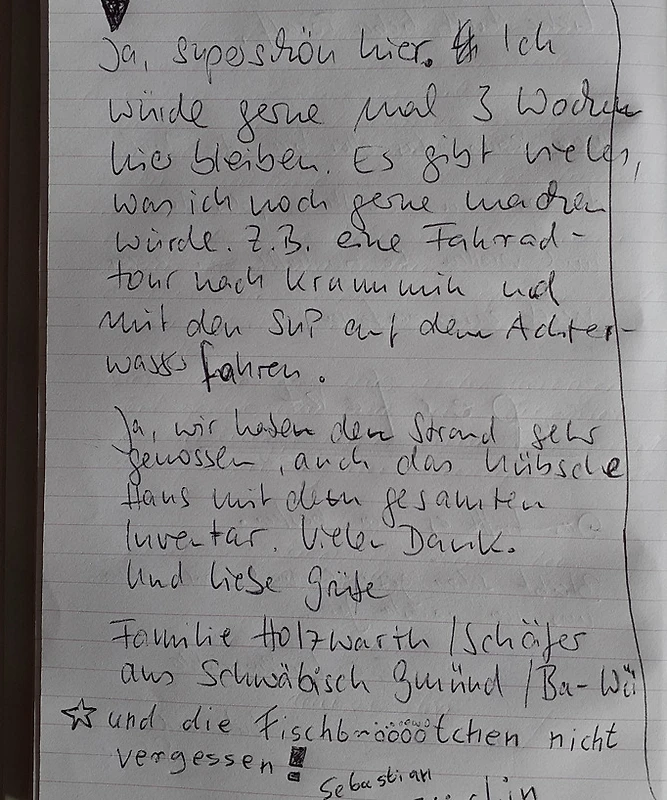 Ja, superschön hier. Ich
würde gerne mal 3 Wochen
hier bleiben. Es gibt vieles,
was ich noch gerne machen
würde. Z.B. eine Fahrrad-
tour nach Krummin und
mit den SuP auf dem Achter-
wasser fahren.
Ja, wir haben den Strand sehr
genossen, auch das hübsche
Haus mit dem gesamten
Inventar. Vielen Dank.
Und liebe Grüße
Familie Holzwarth / Schäfer
aus Schwäbisch Gmünd / Ba-Wü
☆ und die Fischbrööööötchen nicht
vergessen!
Sebastian